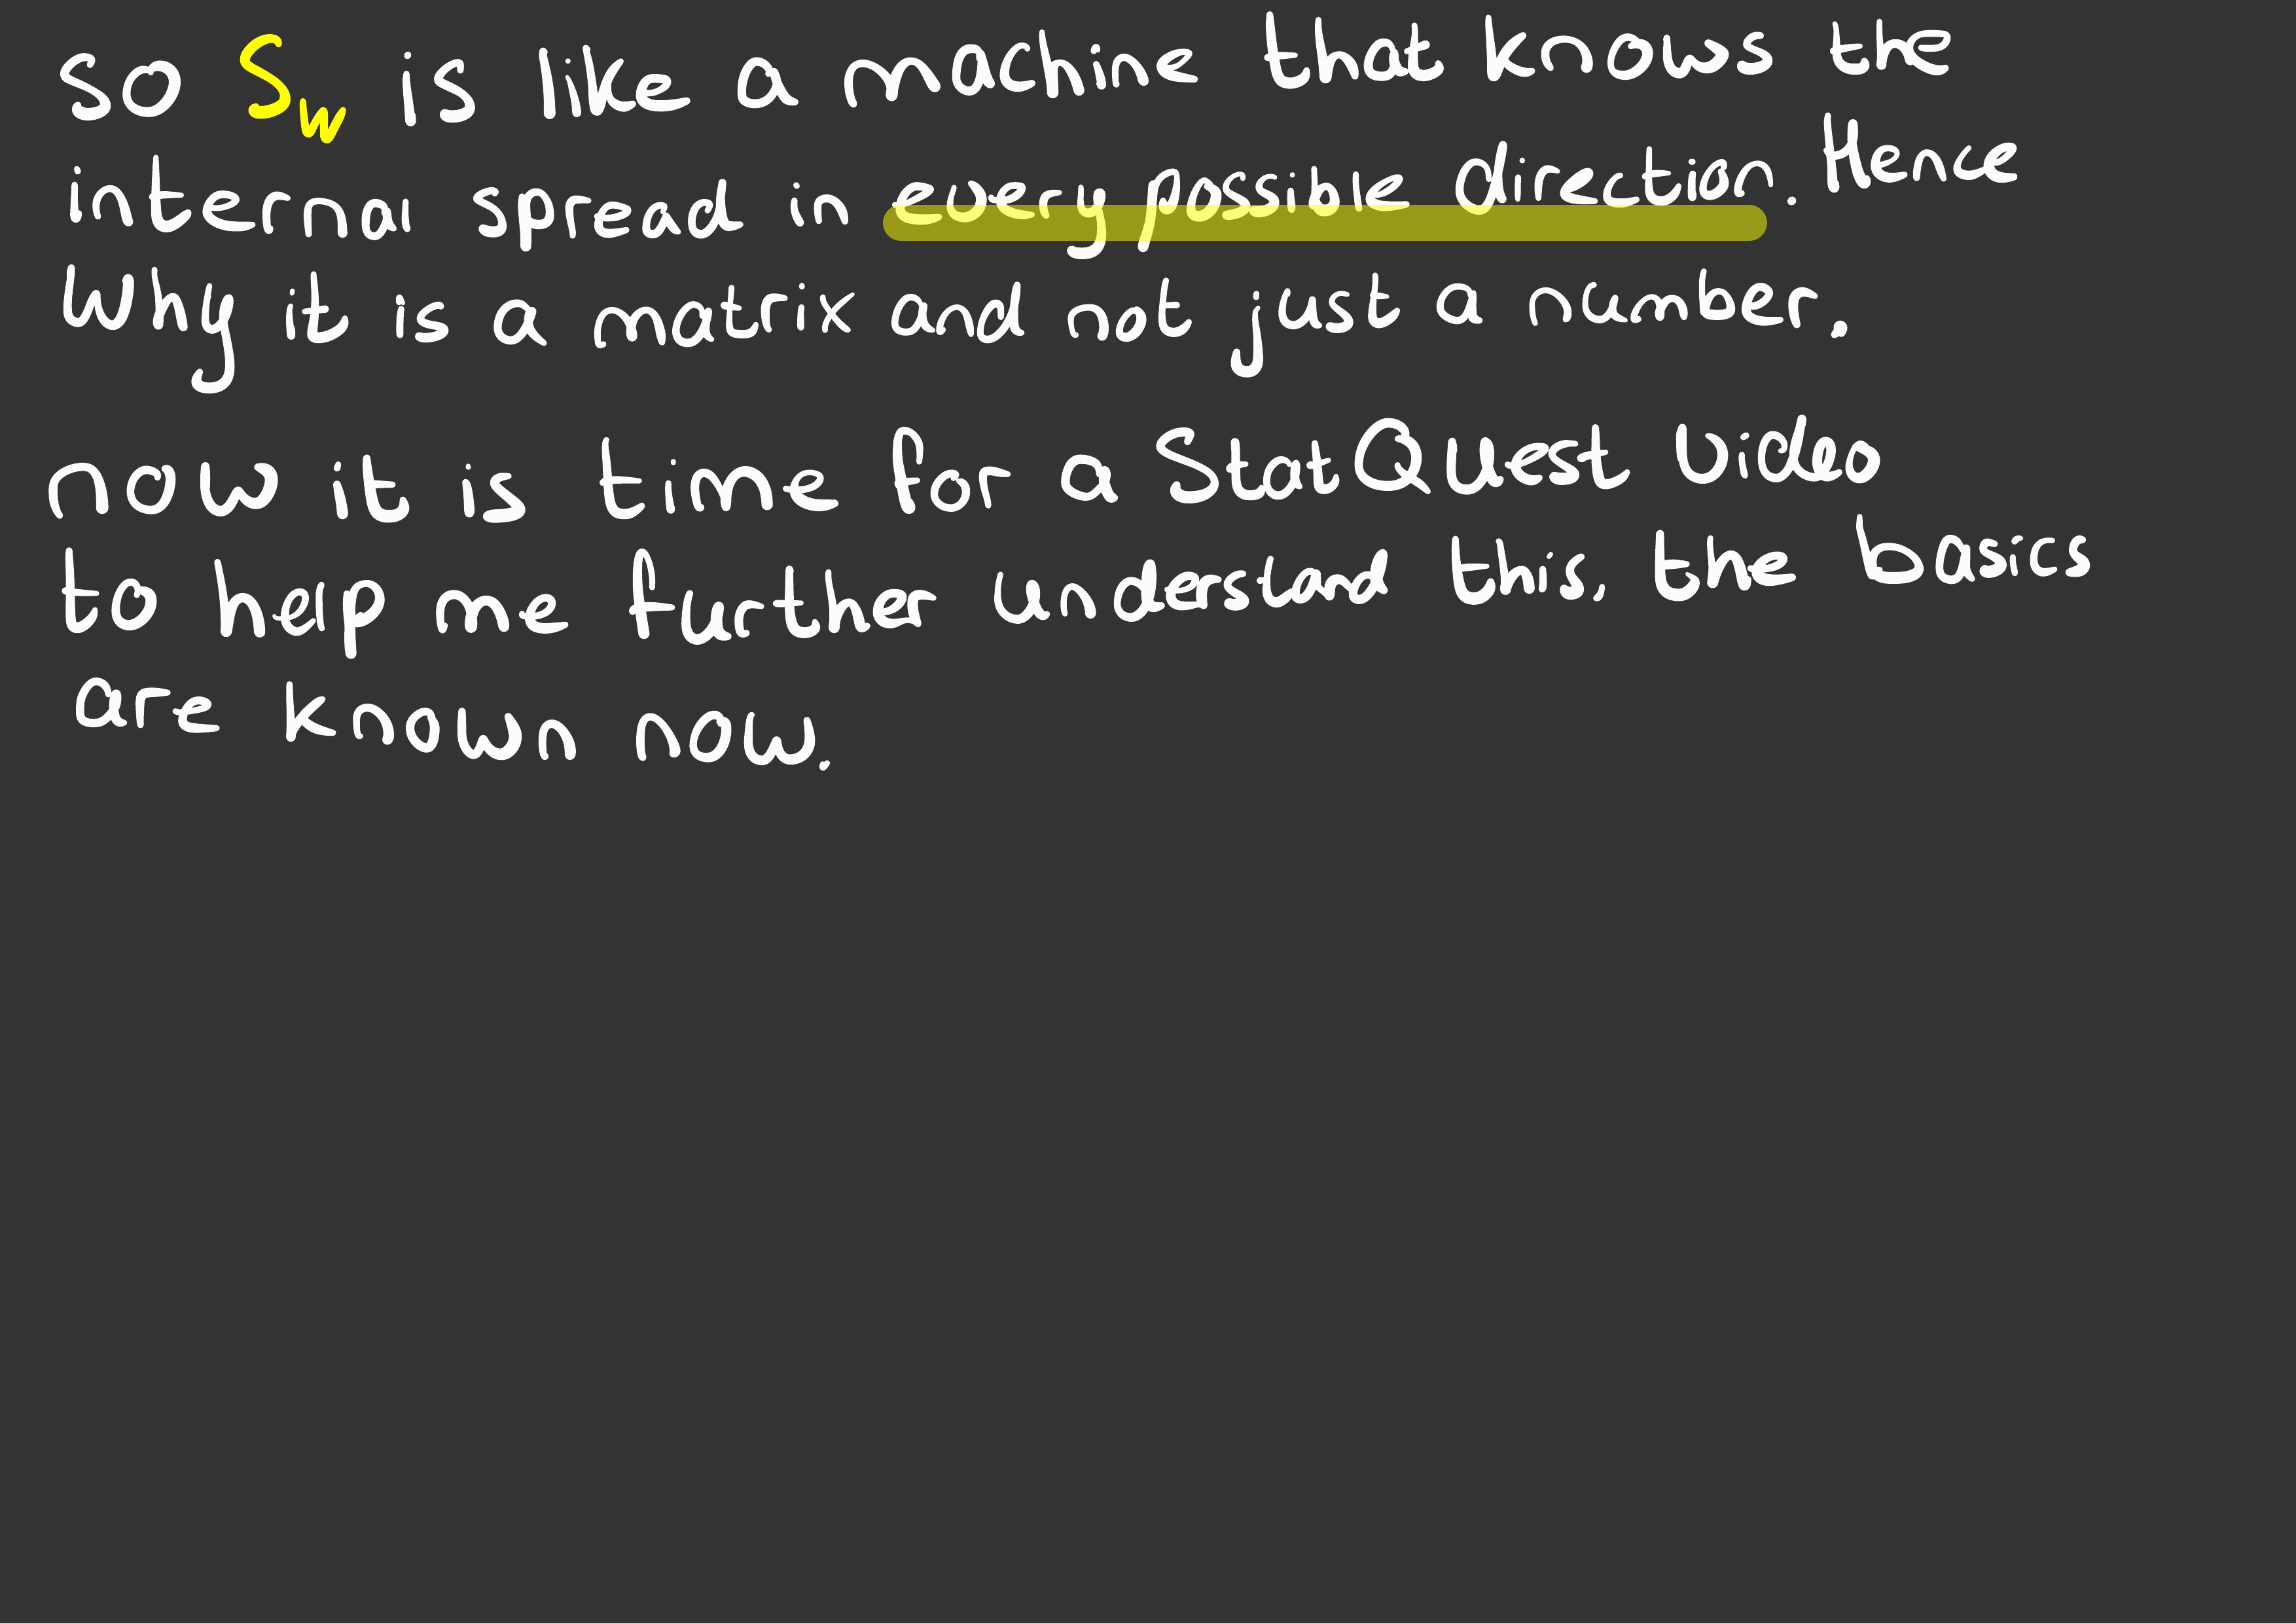 so Sw is like a machine that knows the
internal spread in every possible direction. Hence
Why it is a matrix and not just a number.
now it is time for a StatQuest video
to help me further understand this, the basics
are known now.